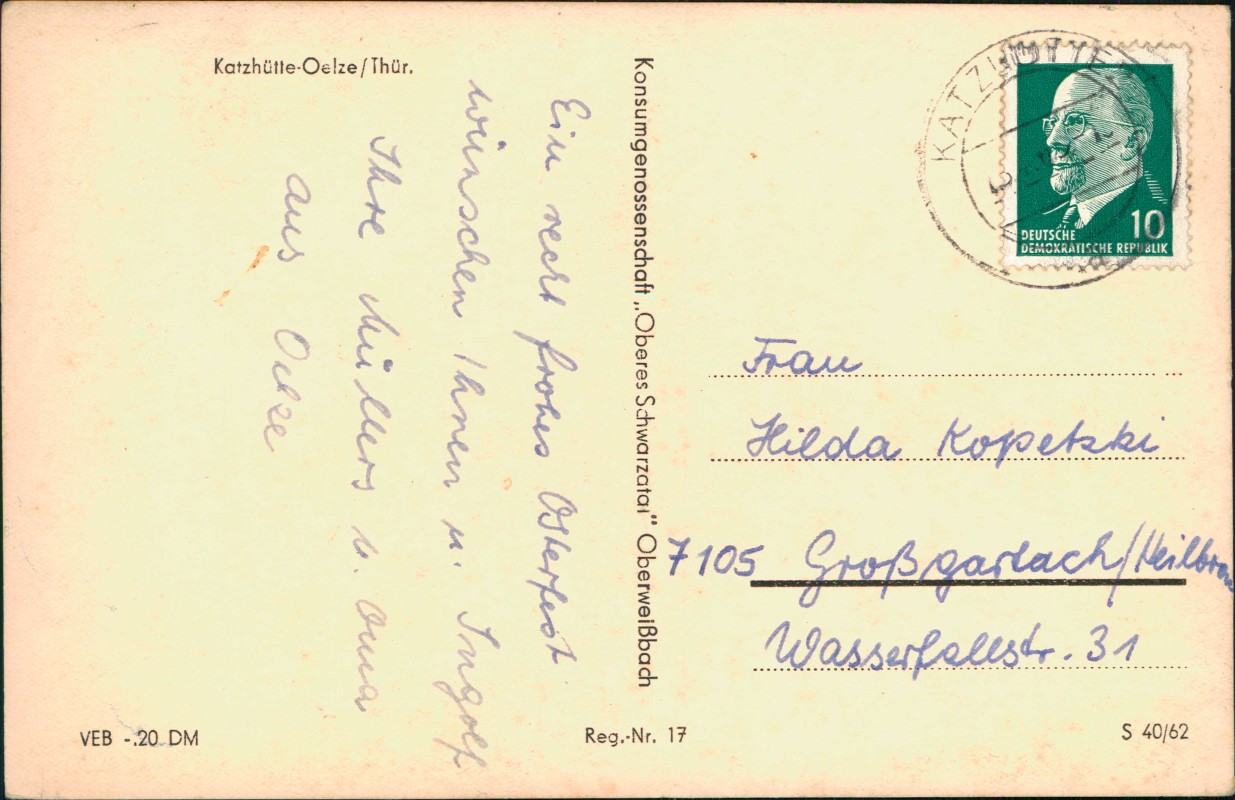 Katzhütte-Oelze/Thür.
Ein recht frohes Osterfest
wünschen Ihnen u. Ingolf
Ihre Müllers u. Oma
aus Oelze
Konsumgenossenschaft „Oberes Schwarzatal" Oberweißbach
KATZHÜTTE
10
DEUTSCHE
DEMOKRATISCHE REPUBLIK
Frau
Hilda Kopetzki
7105 Großgartach/Heilbronn
Wasserfallstr. 31
VEB -.20 DM
Reg.-Nr. 17
S 40/62